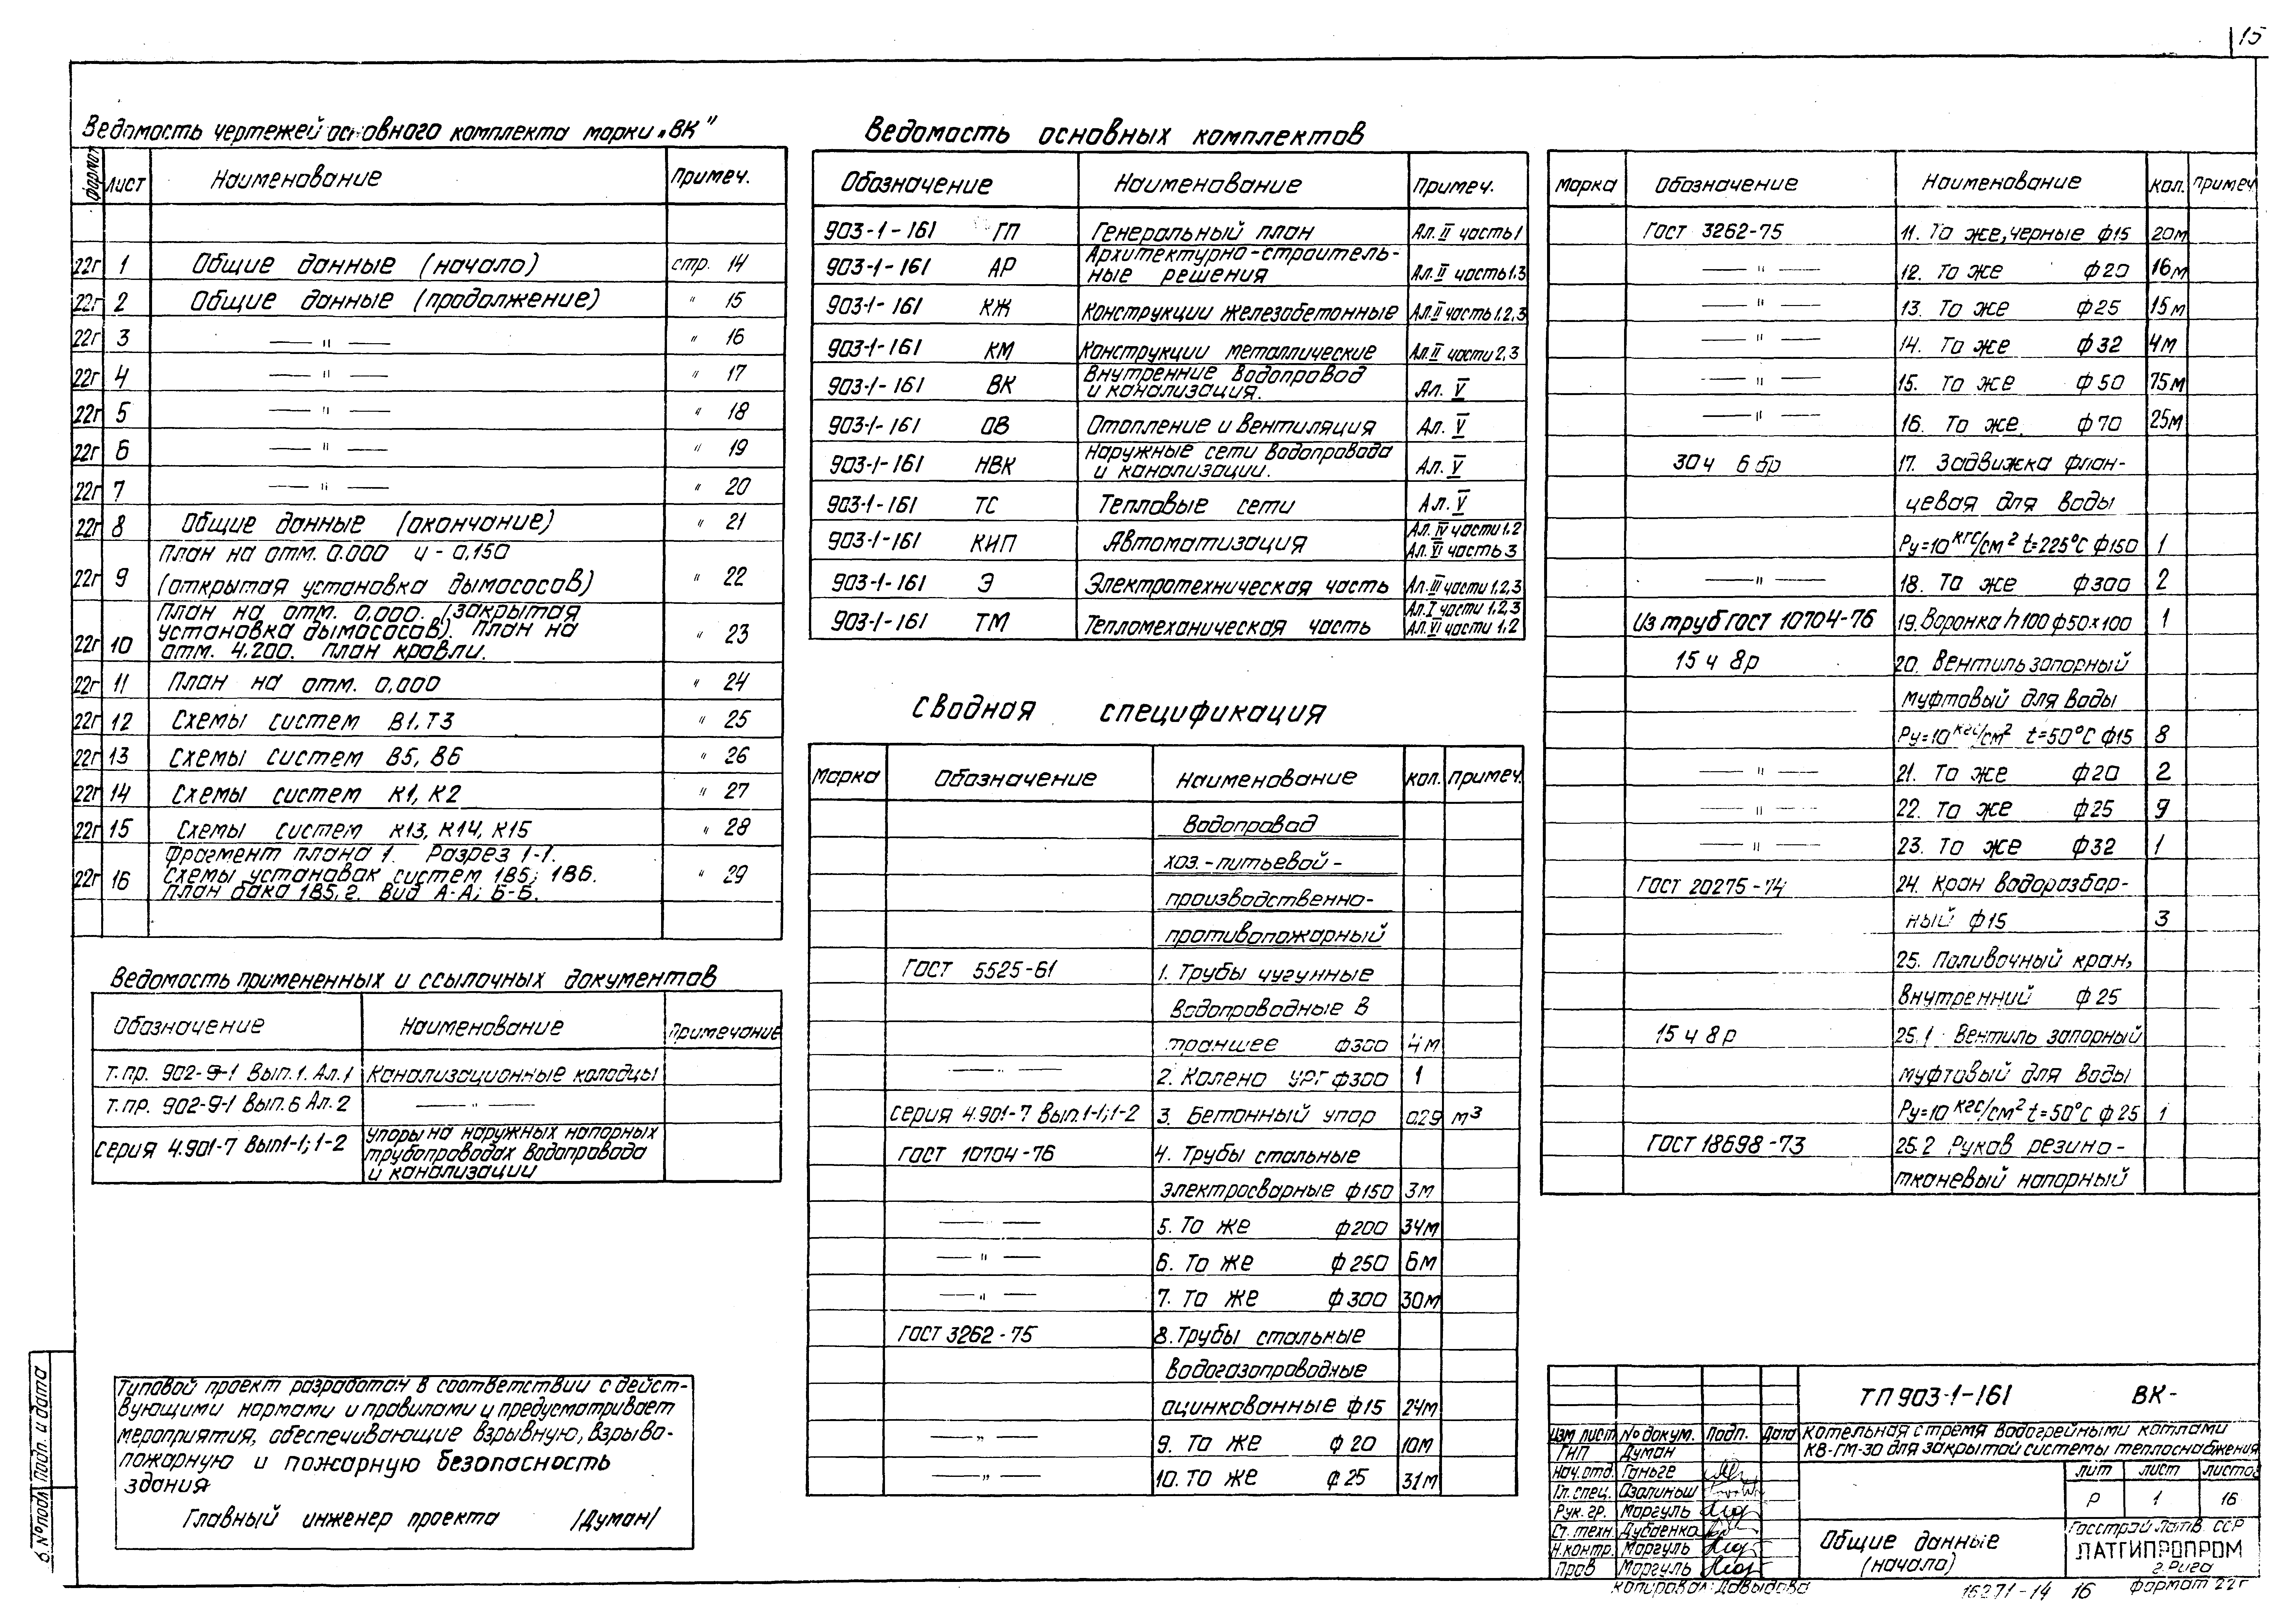 15
Ведомость чертежей основного комплекта марки „ВК"
Формат Лист Наименование Примеч.
22г 1 Общие данные (начало) стр. 14
22г 2 Общие данные (продолжение) " 15
22г 3 — " — " 16
22г 4 — " — " 17
22г 5 — " — " 18
22г 6 — " — " 19
22г 7 — " — " 20
22г 8 Общие данные (окончание) " 21
План на отм. 0.000 и - 0,150
22г 9 (открытая установка дымососов) " 22
План на отм. 0,000. (закрытая
установка дымососов). План на " 23
22г 10 отм. 4.200. План кровли.
22г 11 План на отм. 0,000 " 24
22г 12 Схемы систем В1, Т3 " 25
22г 13 Схемы систем В5, В6 " 26
22г 14 Схемы систем К1, К2 " 27
22г 15 Схемы систем К13, К14, К15 " 28
Фрагмент плана 1. Разрез 1-1.
22г 16 Схемы установок систем 1В5; 1В6. " 29
План бака 1В5,г. Вид А-А; Б-Б.
Ведомость примененных и ссылочных документов
Обозначение Наименование Примечание
Т.пр. 902-9-1 Вып.1. Ал.1 Канализационные колодцы
Т.пр. 902-9-1 Вып.6 Ал.2 — " —
Серия 4.901-7 Вып1-1; 1-2 Упоры на наружных напорных
трубопроводах водопровода
и канализации
Типовой проект разработан в соответствии с дейст-
вующими нормами и правилами и предусматривает
мероприятия, обеспечивающие взрывную, взрыво-
пожарную и пожарную безопасность
здания
Главный инженер проекта /Думан/
Ведомость основных комплектов
Обозначение Наименование Примеч.
903-1-161 ГП Генеральный план Ал. II часть 1
903-1-161 АР Архитектурно-строитель-
ные решения Ал. II часть 1.3
903-1-161 КЖ Конструкции железобетонные Ал. II часть 1,2,3
903-1-161 КМ Конструкции металлические Ал. II части 2,3
903-1-161 ВК Внутренние водопровод
и канализация. Ал. V
903-1-161 ОВ Отопление и вентиляция Ал. V
903-1-161 НВК Наружные сети водопровода
и канализации. Ал. V
903-1-161 ТС Тепловые сети Ал. V
903-1-161 КИП Автоматизация Ал. IV части 1.2
Ал. VI часть 3
903-1-161 Э Электротехническая часть Ал. III части 1,2,3
903-1-161 ТМ Тепломеханическая часть Ал. I части 1,2,3
Ал. VI части 1,2
Сводная спецификация
Марка Обозначение Наименование Кол. Примеч.
Водопровод
хоз.-питьевой-
производственно-
противопожарный
ГОСТ 5525-61 1. Трубы чугунные
водопроводные в
траншее ф300 4м
— " — 2. Колено УРГ ф300 1
Серия 4.901-7 Вып.1-1; 1-2 3. Бетонный упор 0.29 м³
ГОСТ 10704-76 4. Трубы стальные
электросварные ф150 3м
— " — 5. То же ф200 34м
— " — 6. То же ф250 6м
— " — 7. То же ф300 30м
ГОСТ 3262-75 8. Трубы стальные
водогазопроводные
оцинкованные ф15 24м
— " — 9. То же ф20 10м
— " — 10. То же ф25 31м
Марка Обозначение Наименование Кол. Примеч
ГОСТ 3262-75 11. То же, черные ф15 20м
— " — 12. То же ф20 16м
— " — 13. То же ф25 15м
— " — 14. То же ф32 4м
— " — 15. То же ф50 75м
— " — 16. То же ф70 25м
30ч 6бр 17. Задвижка флан-
цевая для воды
Ру=10 кгс/см² t=225°C ф150 1
— " — 18. То же ф300 2
Из труб ГОСТ 10704-76 19. Воронка h100 ф50х100 1
15ч 8р 20. Вентиль запорный
муфтовый для воды
Ру=10 кгс/см² t=50°C ф15 8
— " — 21. То же ф20 2
— " — 22. То же ф25 9
— " — 23. То же ф32 1
ГОСТ 20275-74 24. Кран водоразбор-
ный ф15 3
25. Поливочный кран,
внутренний ф25
15ч 8р 25.1 Вентиль запорный
муфтовый для воды
Ру=10 кгс/см² t=50°C ф25 1
ГОСТ 18698-73 25.2 Рукав резино-
тканевый напорный
ТП 903-1-161 ВК-
Изм Лист № докум. Подп. Дата
Котельная с тремя водогрейными котлами
КВ-ГМ-30 для закрытой системы теплоснабжения
ГИП Думан
Нач. отд. Ганьге
Гл. спец. Озолиньш
Рук. гр. Моргуль
Ст. техн. Дубденко
Н.контр. Моргуль
Пров Моргуль
Лит Лист Листов
Р 1 16
Общие данные
(начало)
Госстрой Латв. ССР
ЛАТГИПРОПРОМ
г. Рига
Копировал: Давыдова 16271-14 16 Формат 22г
Подп. и дата
№ подл